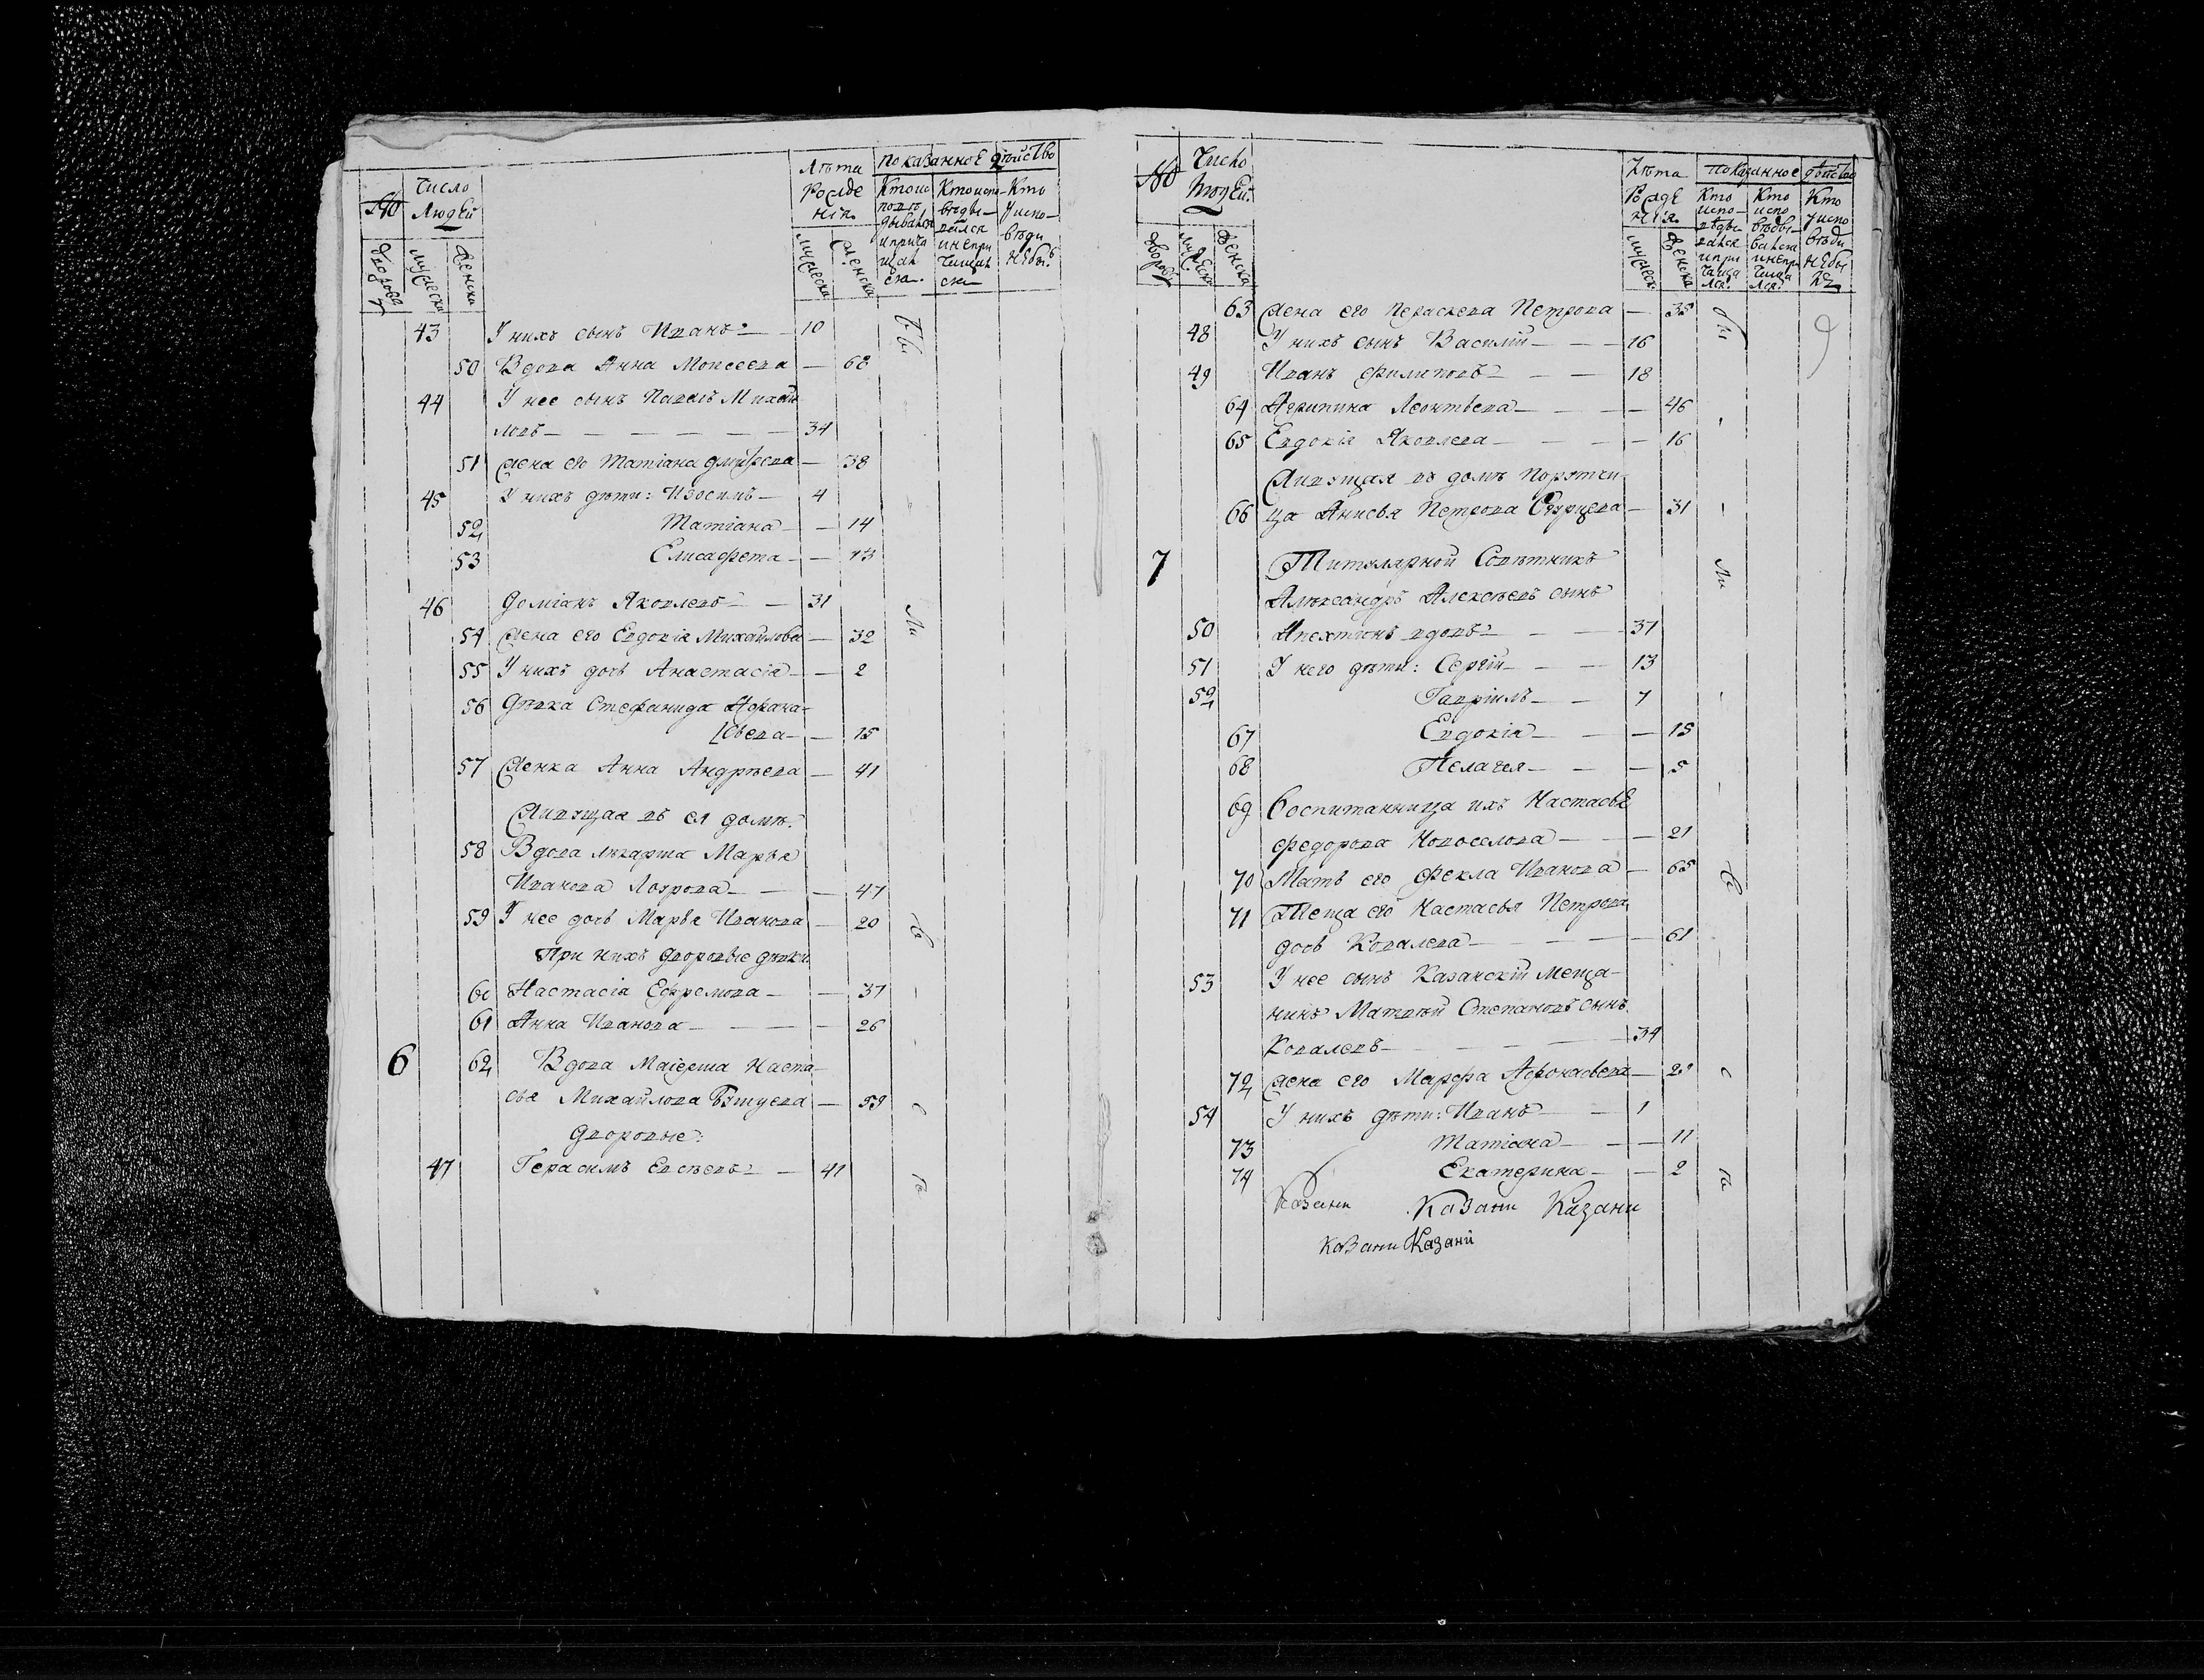 № Число Людей Лѣта рожденія показанное дѣйство
дворовъ мужеска женска мужеска женска Кто исповѣдывался и причащался Кто исповѣдывался и не причащался Кто у исповѣди не былъ
43 У нихъ сынъ Иванъ 10
50 Вдова Анна Моисеева — 68
44 У нее сынъ Павелъ Михай
ловъ 34
51 жена его Татіана Дмитреева — 38
45 У нихъ дѣти: Изосимъ 4
52 Татіана — 14
53 Елисафета — 13
46 Доміанъ Яковлевъ — 31
54 жена его Евдокія Михайлова — 32
55 У нихъ дочь Анастасія — 2
56 Дѣвка Стефанида Афана-
сьева — 15
57 Женка Анна Андрѣева — 41
Живущая въ ея домѣ:
58 Вдова лѣкарша Марья
Иванова — 47
59 У нее дочь Марья Иванова — 20
При нихъ дворовые дѣвки
60 Настасія Ефремова — 37
61 Анна Иванова — 26
6 62 Вдова Маіорша Наста-
сья Михайлова — 59
Дворовые:
47 Герасимъ Евсѣевъ — 41
№ Число людей: Лѣта рожденія показанное дѣйство
дворовъ мужеска женска мужеск женска Кто исповѣдывался и причащался Кто исповѣдывался и не причащался Кто у исповѣди не былъ
63 жена его Параскева Петрова — 35
48 У нихъ сынъ Василій — 16
49 Иванъ Филиповъ — 18
64 Агрипина Леонтьева — 46
65 Евдокія Яковлева — 16
Живущая въ домѣ Порутчи-
66 ца Анисья Петрова — 31
7 Титулярной Совѣтникъ
Александръ Алексѣевъ сынъ
50 вдовъ — 37
51 У него дѣти: Сергій — 13
52 Гавріилъ — 7
67 Евдокія — 15
68 Пелагея — 5
69 Воспитанница ихъ Настасья
Федорова Новоселова — 21
70 Мать его Фекла Иванова — 65
71 Теща его Настасья Петрова
дочь Ковалева — 61
53 У нее сынъ Казанскій меща-
нинъ Матвѣй Степановъ сынъ
Ковалевъ — 34
72 жена его Марфа Афонасьева — 29
54 У нихъ дѣти: Иванъ — 1
73 Татіана — 11
74 Екатерина — 2
Казани Казани Казани
Казани Казани